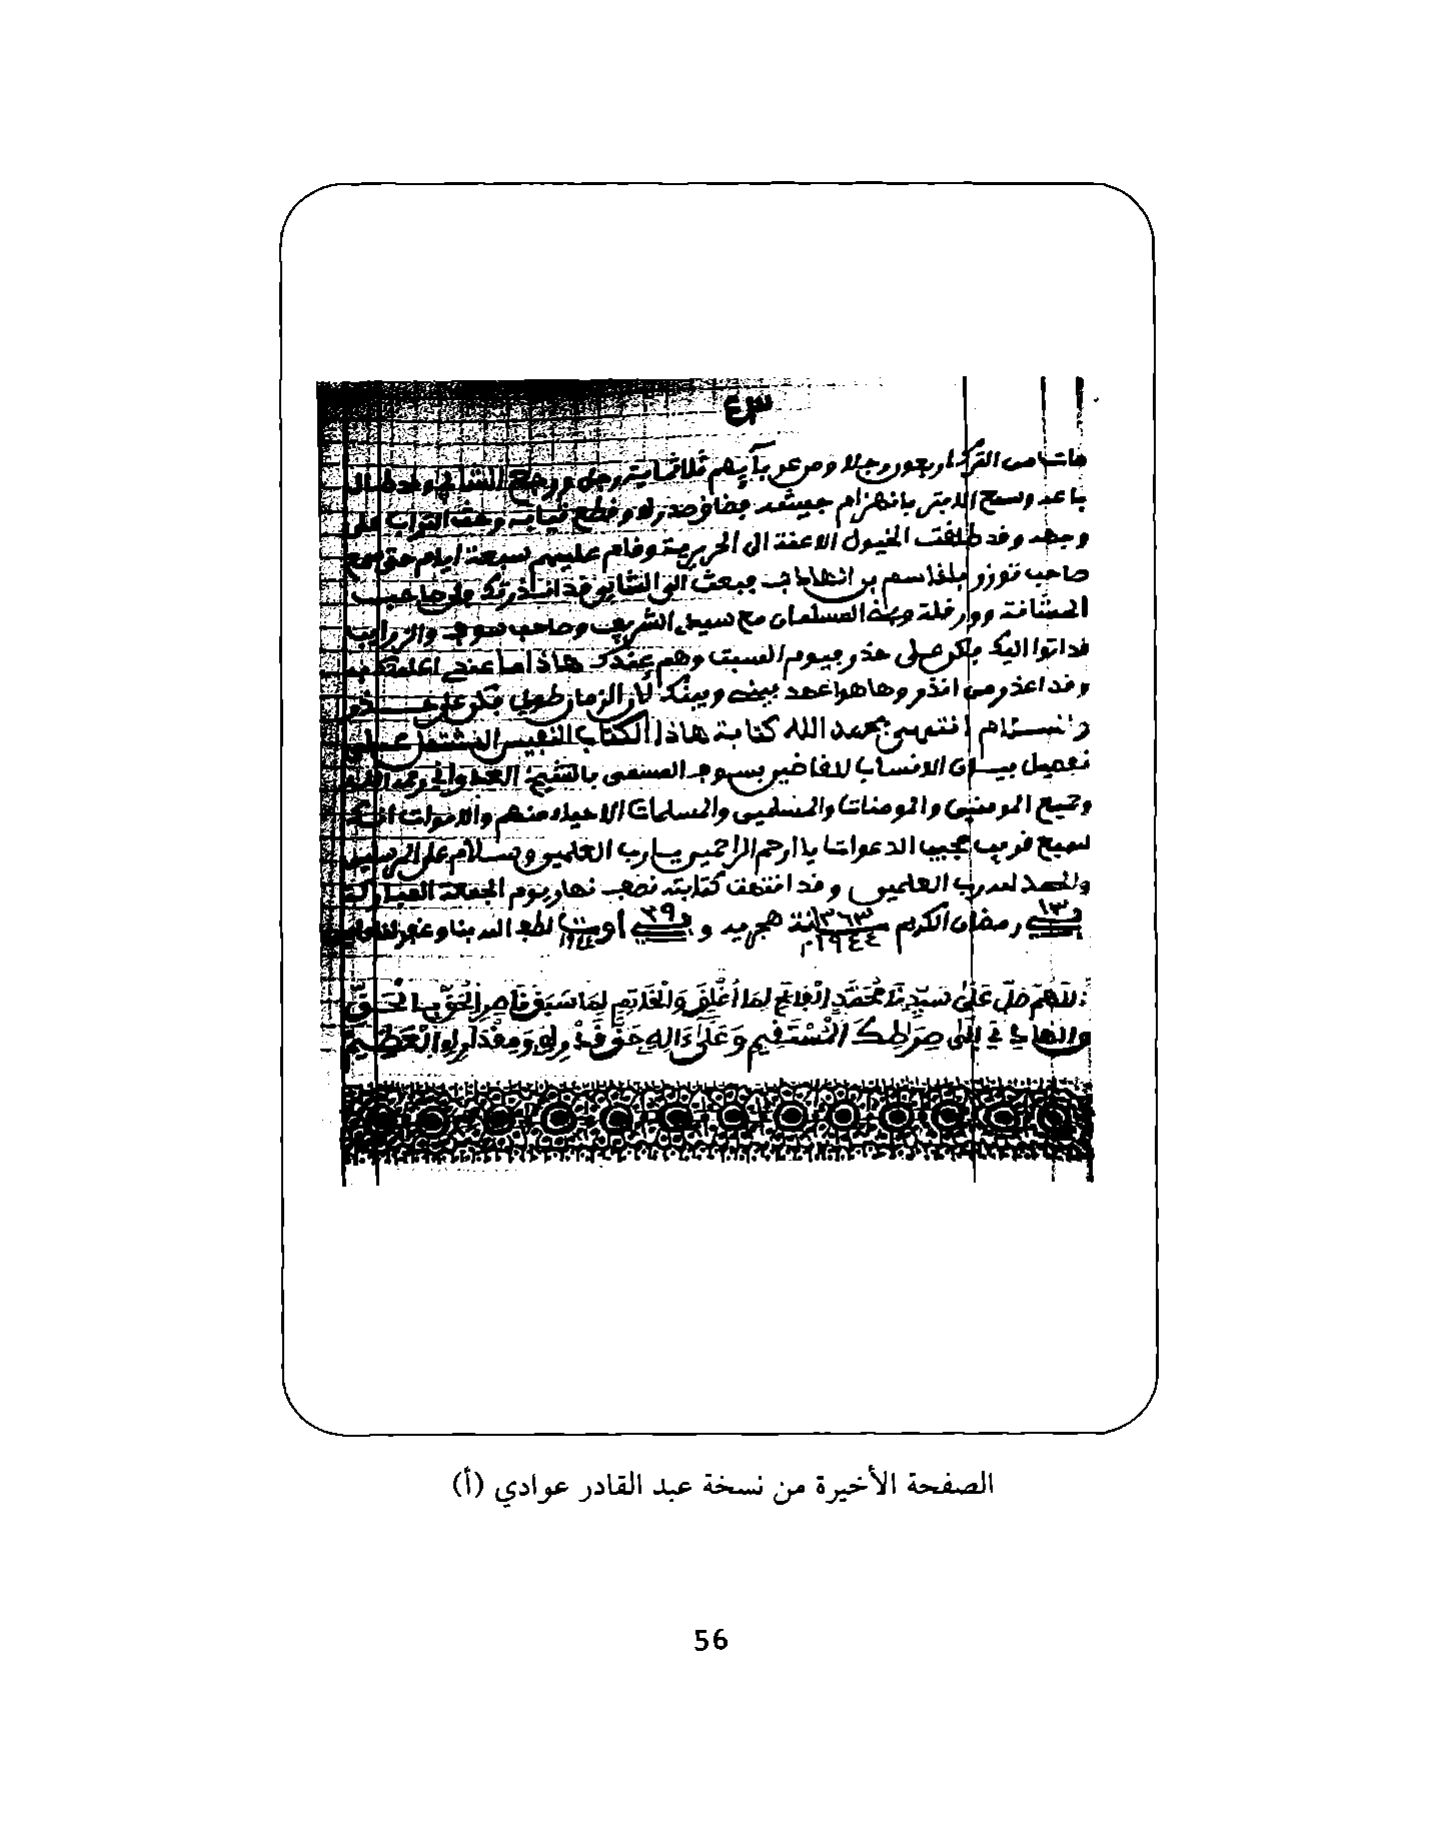 ٤٣
مات من الترك اربعون رجلا ومن عربانهم ثلاثماية رجل ورجع الشابي وقد طال
باعه وسمع اللابتر بانهزام جيشه فضاق صدره وقطع ثيابه وحث التراب على
وجهه وقد طلقت الخيول الاعنة الى الحريرية وقام عليهم سبعة ايام حتى سمع
صاحب توزر بلقاسم بن الهادب فبعث الى الشابي قد انذرتك صاحب
المشانة وورقلة المسلمان مع سيدي الشريف وصاحب سوف والزرايب
قد اتوا اليك فكن على حذر فيوم السبت وهم عندك هاذا ما عندي اعلمتك به
وقد اعذر من انذر وها هو اعهد بيني وبينك لأن الزمان طويل فكن على حذر
والسلام انتهى بحمد الله كتابة هاذا الكتاب النفيس المشتمل على
تفصيل بيان الانساب للقاضين بسوف المسمى
وجميع المومنين والمومنات والمسلمين والمسلمات الاحياء منهم والاموات انك
سميع قريب مجيب الدعوات يا ارحم الراحمين يا رب العلمين وسلام على المرسلين
والحمد لله رب العلمين وقد انتهت كتابته نصف نهار يوم الجمعة المباركة
في ١٣ رمضان الكريم سنة ١٣٦٣ هجريه ١٩٤٤م و في ٣٩ أوت ١٩٤٤ لطف الله بنا وغفر لنا
اللهم صل على سيدنا محمد الفاتح لما أغلق والخاتم لما سبق ناصر الحق بالحق
والهادي إلى صراطك المستقيم وعلى ءاله حق قدره ومقداره العظيم
الصفحة الأخيرة من نسخة عبد القادر عوادي (أ)
56